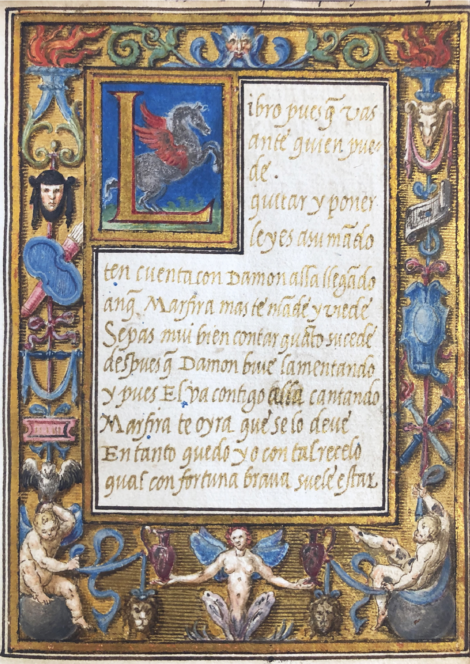 Libro pues q̃ vas
ante quien pue-
de.
quitar y poner
leyes a su mãdo
ten cuenta con Damon alla llegãdo
anq̃ Marfira mas te mãde y viede
Sepas mui bien contar quãto sucede
despues q̃ Damon bive lamentando
y pues El va contigo alla cantando
Marfira te oyra que se lo deve
Entanto quedo yo con tal recelo
qual con fortuna brava suele estar